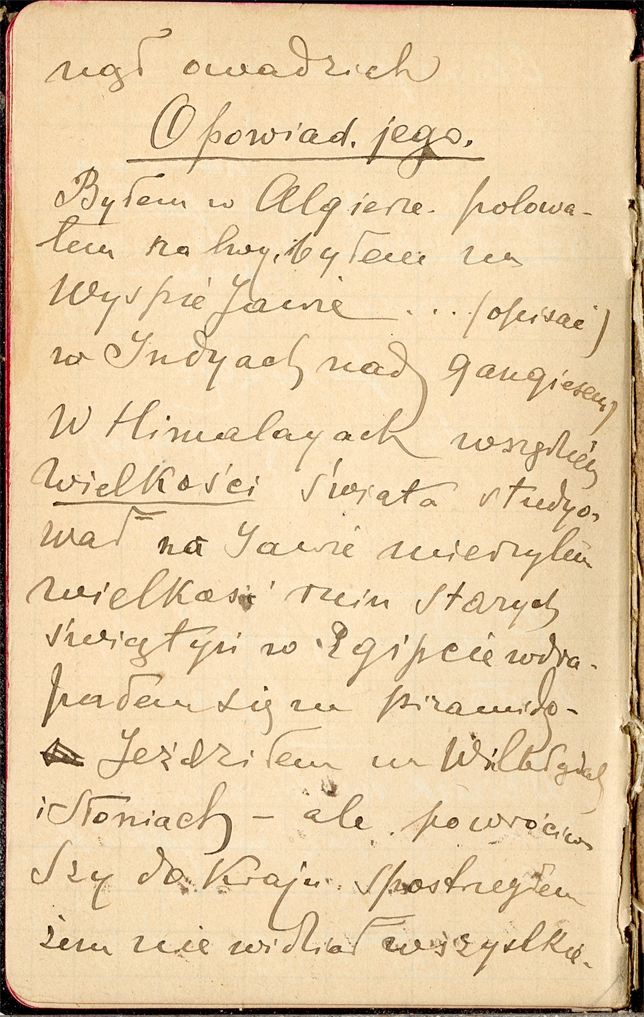 nąd owadzich
Opowiad. jego.
Byłem w Algierze. polowa-
łem na lwy, byłem na
Wyspie Jawie ... (opisać)
w Indyach nad gangiesem
W Himalayach
wielkości świata studyo-
wał na Jawie mierzyłem
wielkość ruin starych
świątyń w Egipcie wdra-
pałem się na piramidę-
Jeździłem na Wielbłądach
i słoniach - ale powróciw
szy do Kraju spostrzegłem
żem nie widział wszystkie-